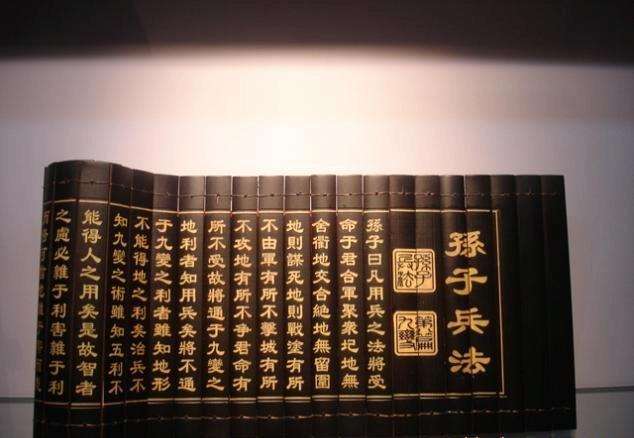 孫子兵法
孫子曰凡用兵之法將受
命于君合軍聚衆圮地無
舍衢地交合絶地無留圍
地則謀死地則戰塗有所
不由軍有所不擊城有所
不攻地有所不爭君命有
所不受故將通于九變之
地利者知用兵矣將不通
于九變之利者雖知地形
不能得地之利矣治兵不
知九變之術雖知五利不
能得人之用矣是故智者
之慮必雜于利害雜于利